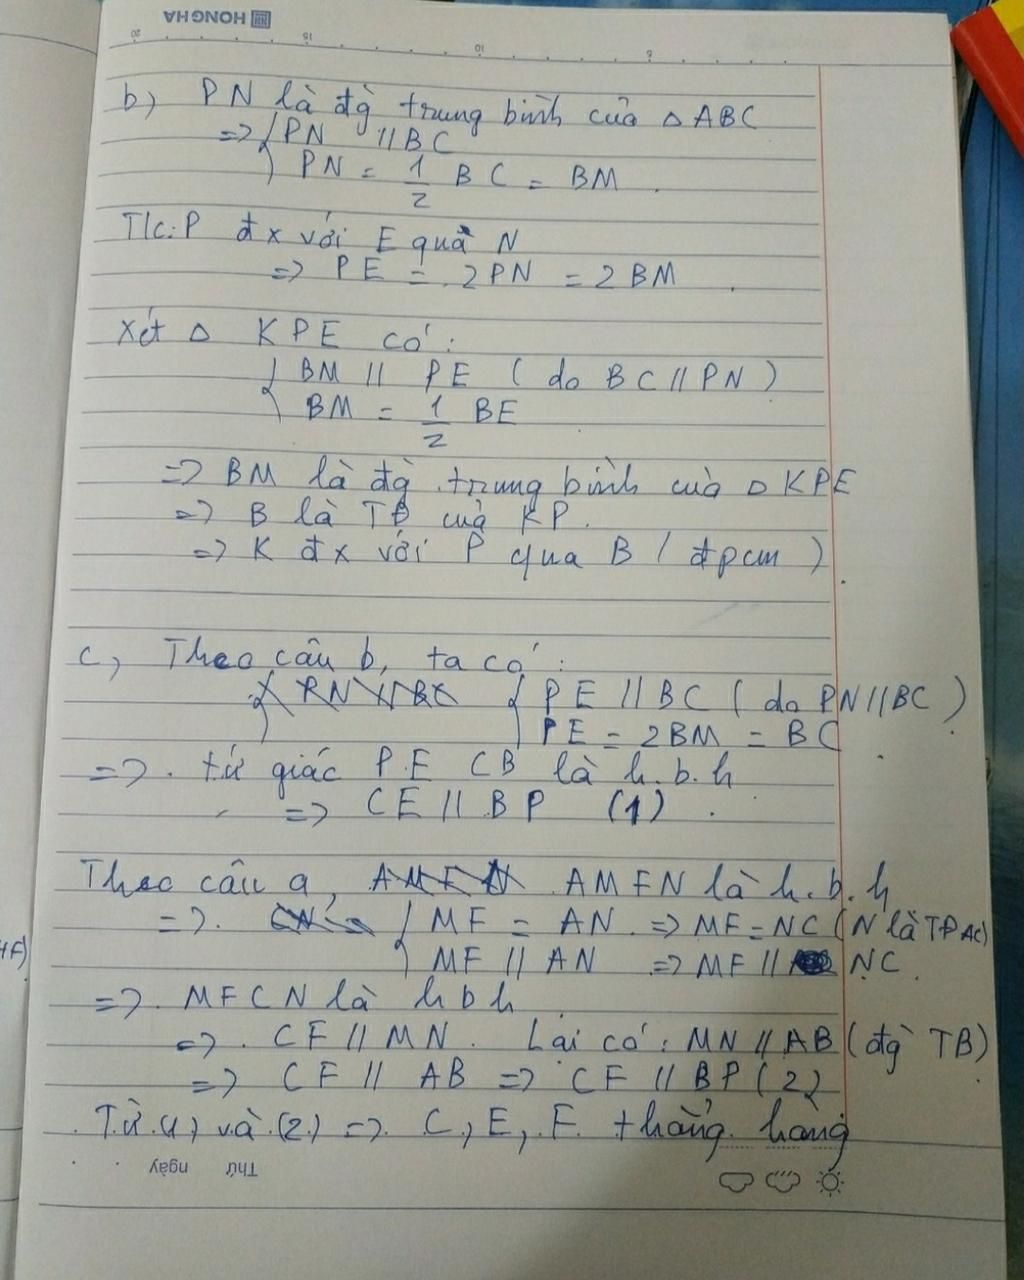 HONG HA
20 15 10 5
b) PN là đg trung bình của △ ABC
=> { PN // BC
PN = 1/2 BC = BM .
T/c: P đx với E qua N
=> PE = 2PN = 2BM .
Xét △ KPE có:
{ BM // PE ( do BC // PN )
BM = 1/2 BE
=> BM là đg trung bình của △ KPE
=> B là TĐ của KP.
=> K đx với P qua B ( đpcm ) .
c, Theo câu b, ta có:
{ PN // BC { PE // BC ( do PN // BC )
PE = 2BM = BC
=> . tứ giác PECB là h.b.h
=> CE // BP (1) .
Theo câu a, AMFN AMFN là h.b.h
=> . CN = { MF = AN => MF = NC ( N là TĐ AC)
MF // AN => MF // NC .
=> . MFCN là hbh
=> . CF // MN . Lại có : MN // AB ( đg TB )
=> CF // AB => CF // BP (2)
Từ (1) và (2) => C, E, F thẳng hàng
Thứ ngày
HF)